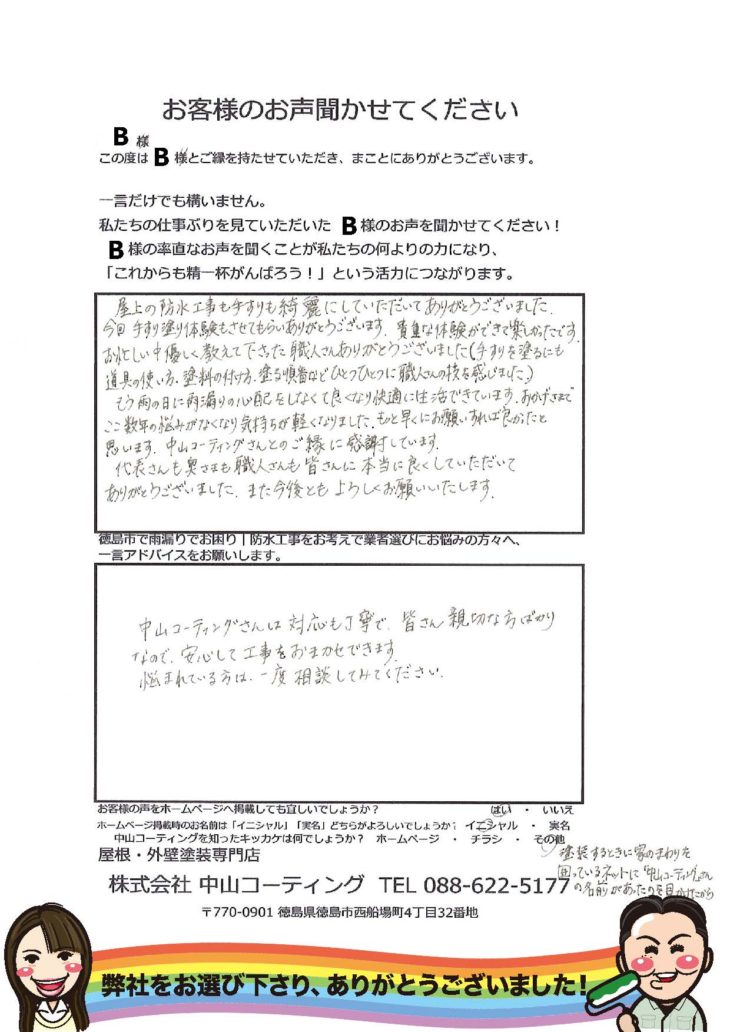 お客様のお声聞かせてください
B 様
この度は B 様とご縁を持たせていただき、まことにありがとうございます。
一言だけでも構いません。
私たちの仕事ぶりを見ていただいた B 様のお声を聞かせてください！
B 様の率直なお声を聞くことが私たちの何よりの力になり、
「これからも精一杯がんばろう！」という活力につながります。
屋上の防水工事も手すりも綺麗にしていただいてありがとうございました.
今回 手すり塗り体験もさせてもらいありがとうございます. 貴重な体験ができて楽しかったです.
お忙しい中優しく教えて下さった職人さんありがとうございました(手すりを塗るにも
道具の使い方・塗料の付け方・塗る順番などひとつひとつに職人さんの技を感じました.)
もう雨の日に雨漏りの心配をしなくて良くなり快適に生活できています. おかげさまで
ここ数年の悩みがなくなり気持ちが軽くなりました. もっと早くにお願いすれば良かったと
思います. 中山コーティングさんとのご縁に感謝しています.
代表さんも奥さまも職人さんも皆さんに本当に良くしていただいて
ありがとうございました. また今後ともよろしくお願いいたします.
徳島市で雨漏りでお困り｜防水工事をお考えで業者選びにお悩みの方々へ、
一言アドバイスをお願いします。
中山コーティングさんは対応も丁寧で、皆さん親切な方ばかり
なので、安心して工事をおまかせできます.
悩まれている方は、一度相談してみてください.
お客様の声をホームページへ掲載しても宜しいでしょうか？ はい ・ いいえ
ホームページ掲載時のお名前は「イニシャル」「実名」どちらがよろしいでしょうか？ イニシャル ・ 実名
中山コーティングを知ったキッカケは何でしょうか？ ホームページ ・ チラシ ・ その他
塗装するときに家のまわりを
囲っているネットに「中山コーティング」さん
の名前があったのを見かけたから
屋根・外壁塗装専門店
株式会社 中山コーティング TEL 088-622-5177
〒770-0901 徳島県徳島市西船場町4丁目32番地
弊社をお選び下さり、ありがとうございました！